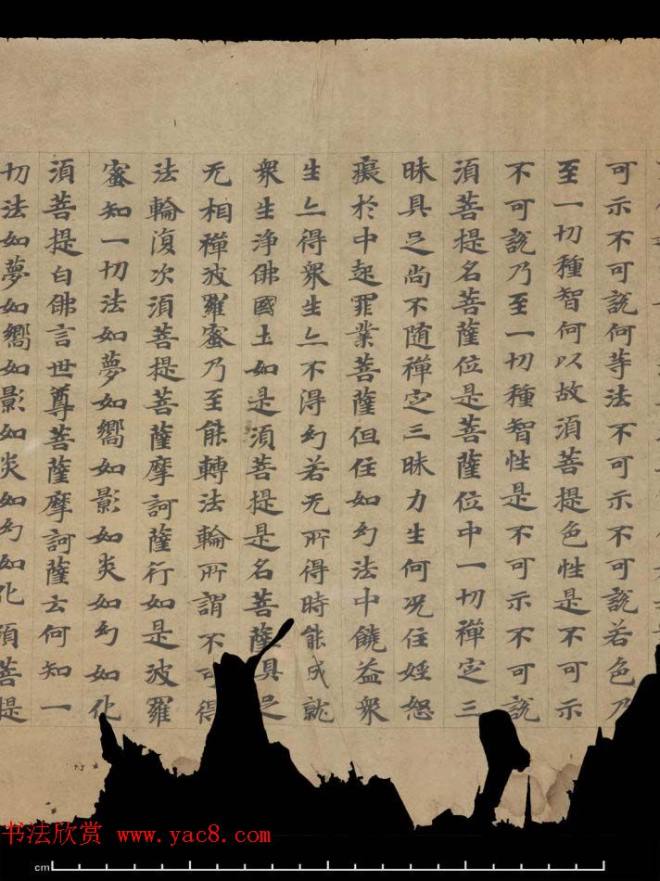 可示不可說何等法不可示不可說若色乃
至一切種智何以故須菩提色性是不可示
不可說乃至一切種智性是不可示不可說
須菩提名菩薩位是菩薩位中一切禪定三
昧具足尚不随禪定三昧力生何况住婬怒
癡於中起罪業菩薩但住如幻法中饒益衆
生亦得衆生亦不得幻若无所得時能成就
衆生淨佛國土如是須菩提是名菩薩具足
无相禪波羅蜜乃至能轉法輪所謂不可得
法輪復次須菩提菩薩摩訶薩行如是波羅
蜜知一切法如夢如嚮如影如炎如幻如化
須菩提白佛言世尊菩薩摩訶薩云何知一
切法如夢如嚮如影如炎如幻如化須菩提
书法欣赏 www.yac8.com
cm